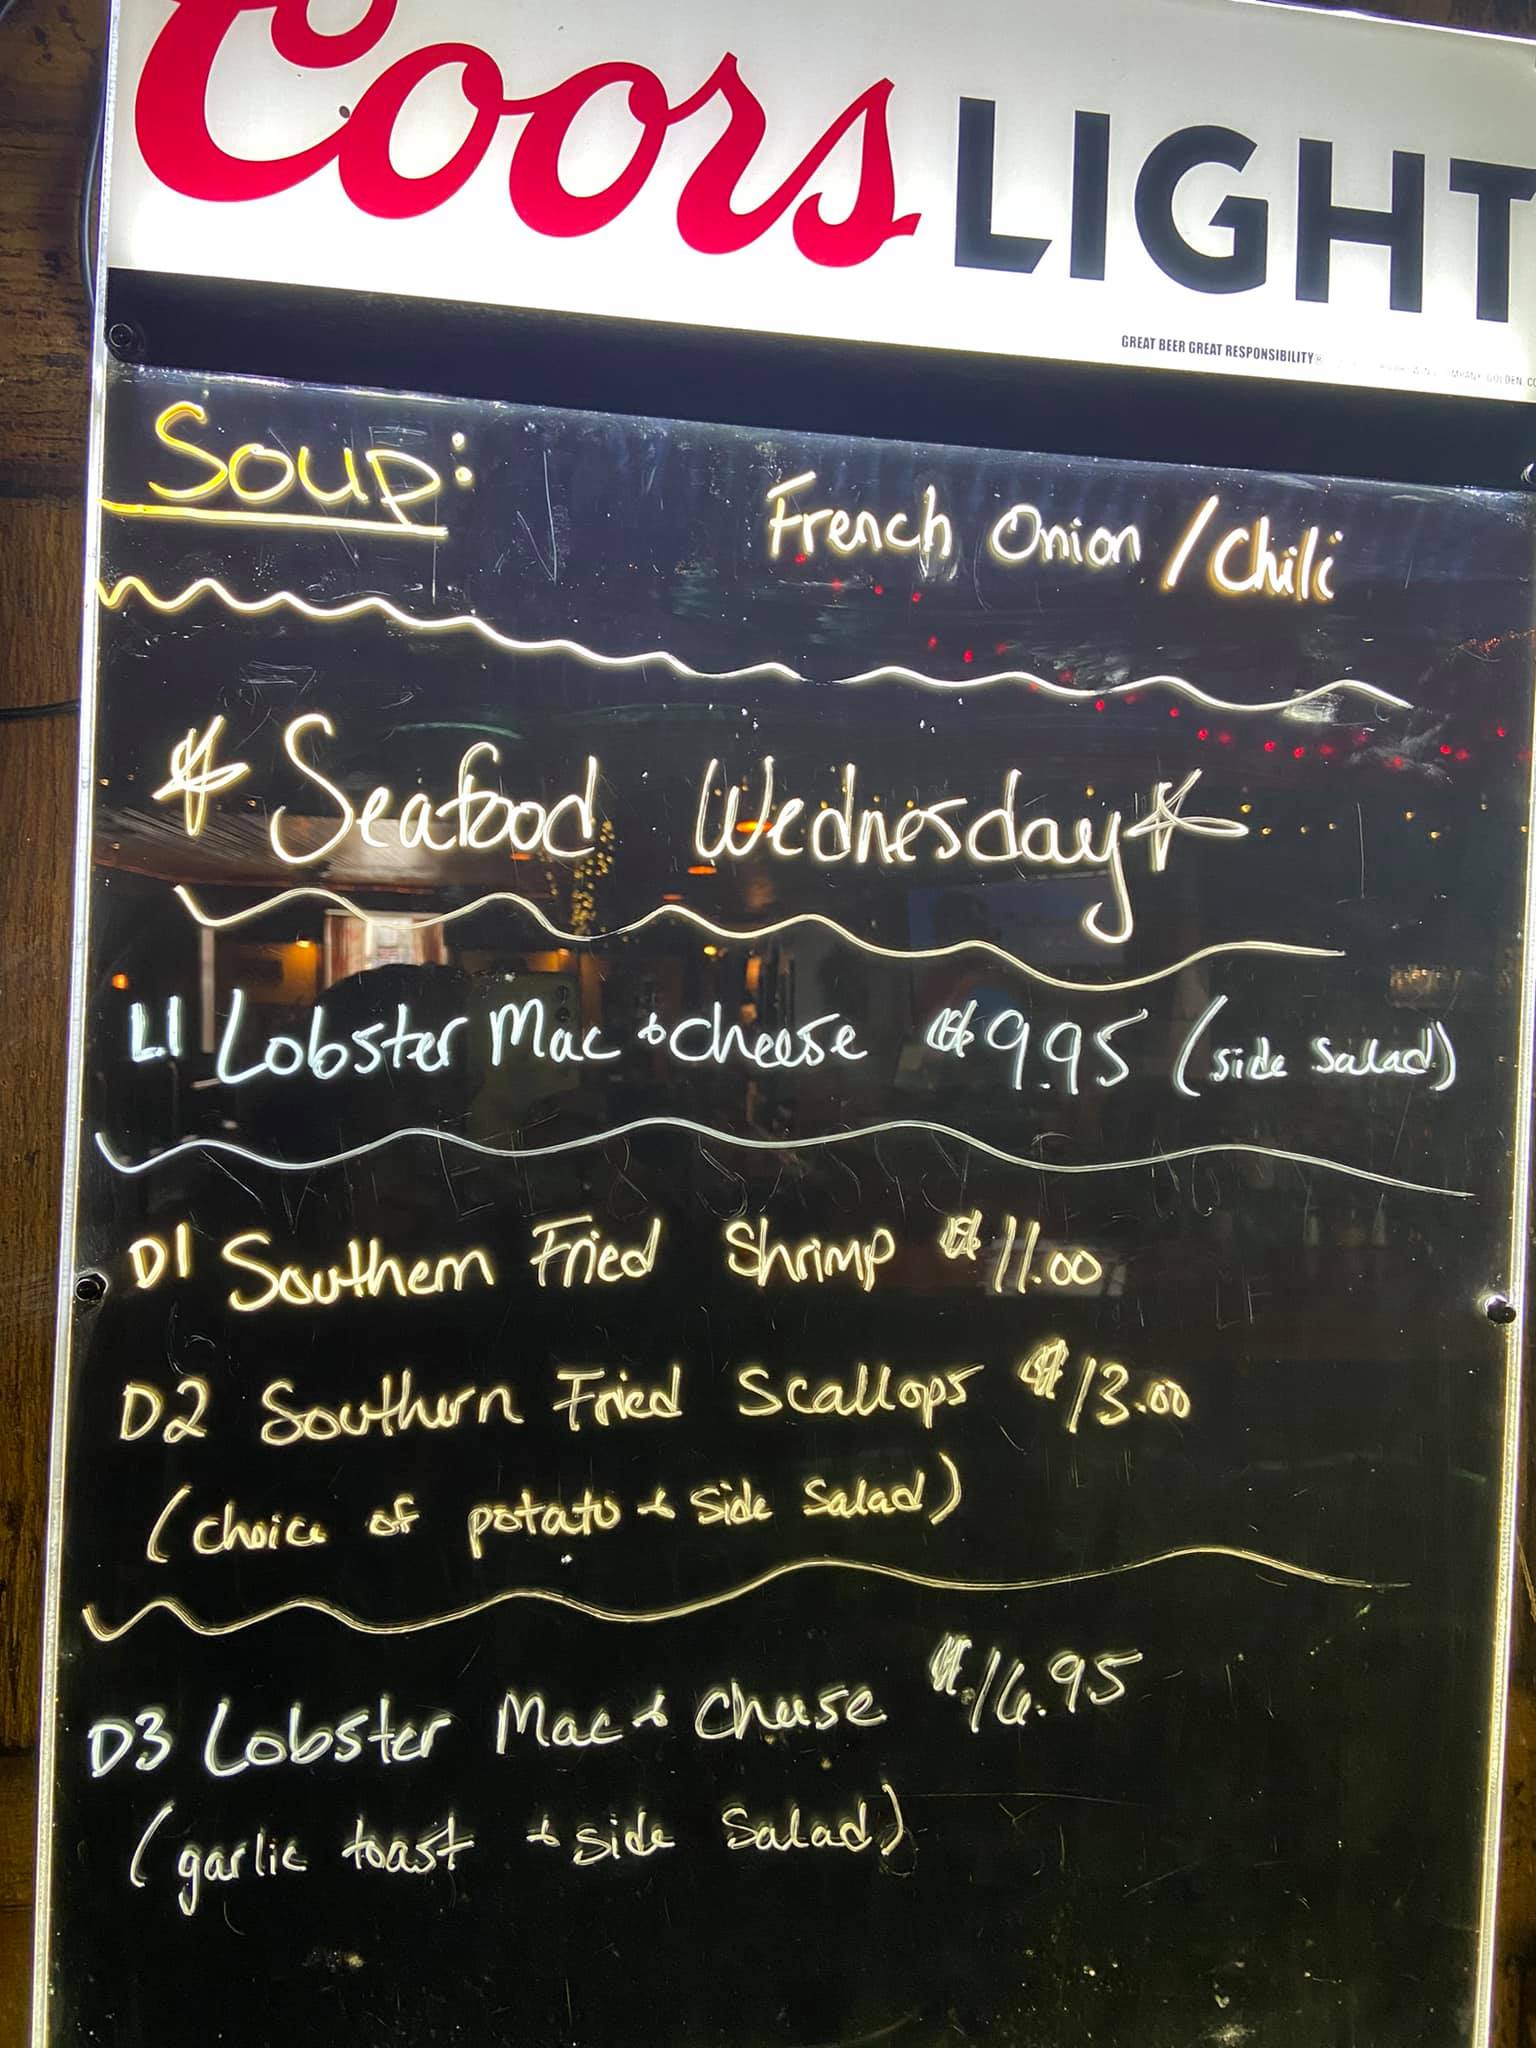 Coors LIGHT
GREAT BEER GREAT RESPONSIBILITY®
Soup:
French Onion / Chili
Seafood Wednesday
L1 Lobster Mac & Cheese $9.95 (side salad)
D1 Southern Fried Shrimp $11.00
D2 Southern Fried Scallops $13.00
(choice of potato & side salad)
D3 Lobster Mac & Cheese $16.95
(garlic toast & side salad)